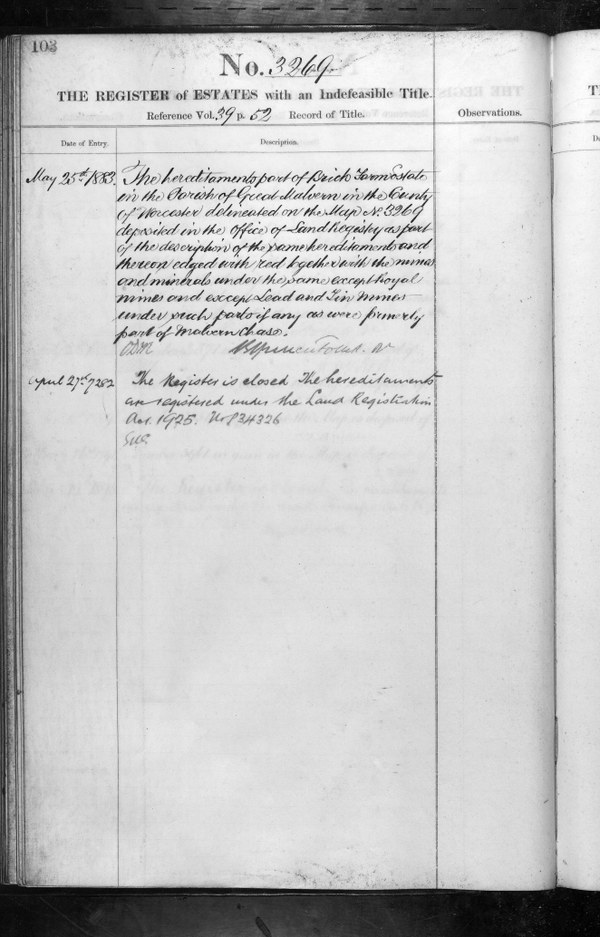 103
No. 3269.
THE REGISTER of ESTATES with an Indefeasible Title.
Reference Vol. 39 p. 52 Record of Title.
Observations.
Date of Entry.
Description.
May 25th 1883.
The hereditaments part of Brick Farm Estate
in the Parish of Great Malvern in the County
of Worcester delineated on the Map No. 3269
deposited in the Office of Land Registry as part
of the description of the same hereditaments and
thereon edged with red together with the mines
and minerals under the same except Royal
mines and except Lead and Tin Mines
under such parts if any as were formerly
part of Malvern Chase.
April 27th
The Register is closed The hereditaments
are registered under the Land Registration
Act. 1925. No 834326